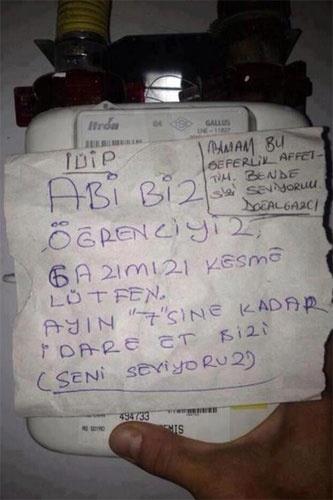 Itrón G4 GALLUS
İDİP
ABİ BİZ
ÖĞRENCİYİZ,
GAZIMIZI KESME
LÜTFEN.
AYIN "7"SİNE KADAR
İDARE ET BİZİ
(SENİ SEVİYORUZ)
TAMAM BU
SEFERLİK AFFET-
TİM. BENDE
SİZİ SEVİYORUM.
DOĞALGAZCI
494733